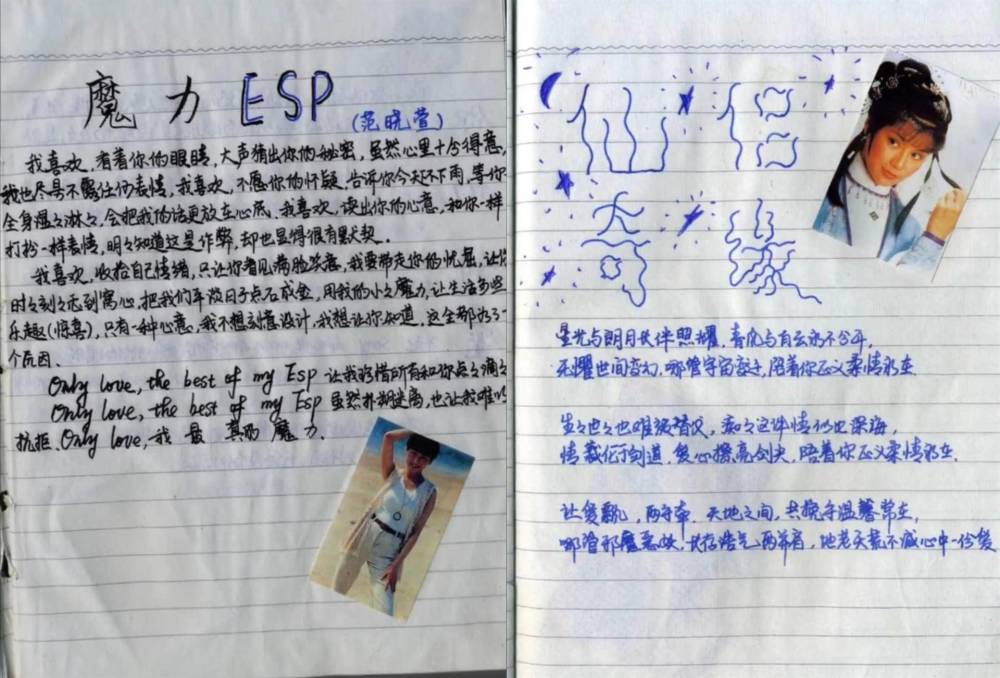 魔力 ESP
(范晓萱)
我喜欢,看着你的眼睛,大声猜出你的秘密,虽然心里十分得意,
我也尽量不露任何表情,我喜欢,不愿你的怀疑,告诉你今天不下雨,等你
全身湿々淋々,会把我的话更放在心底,我喜欢,读出你的心意,和你一样
打扮一样表情,明々知道这是作弊,却也显得很有默契.
我喜欢,收拾自己情绪,只让你看见满脸笑意,我要带走你的忧愁,让你
时々刻々感到窝心,把我们平淡日子点石成金,用我的小々魔力,让生活多些
乐趣(惊喜),只有一种心意,我不想刻意设计,我想让你知道,这全都为了一
个原因.
Only love, the best of my Esp 让我珍惜所有和你点々滴々
Only love, the best of my Esp 虽然扑朔迷离,也让我难以
抗拒.Only love,我最真的魔力.
星光与明月长伴照耀,青风与白云永不分开,
无惧世间变幻,哪管宇宙变了,陪着你正义柔情永在
生々世々也难被替代,痴々这件情仍也深海,
情义行侠道,爱心擦亮剑光,陪着你正义柔情永在.
让爱飘,两手牵,天地之间,共挽手温馨常在,
哪管邪魔恶妖,长存浩气两并肩,地老天荒不减心中一份爱